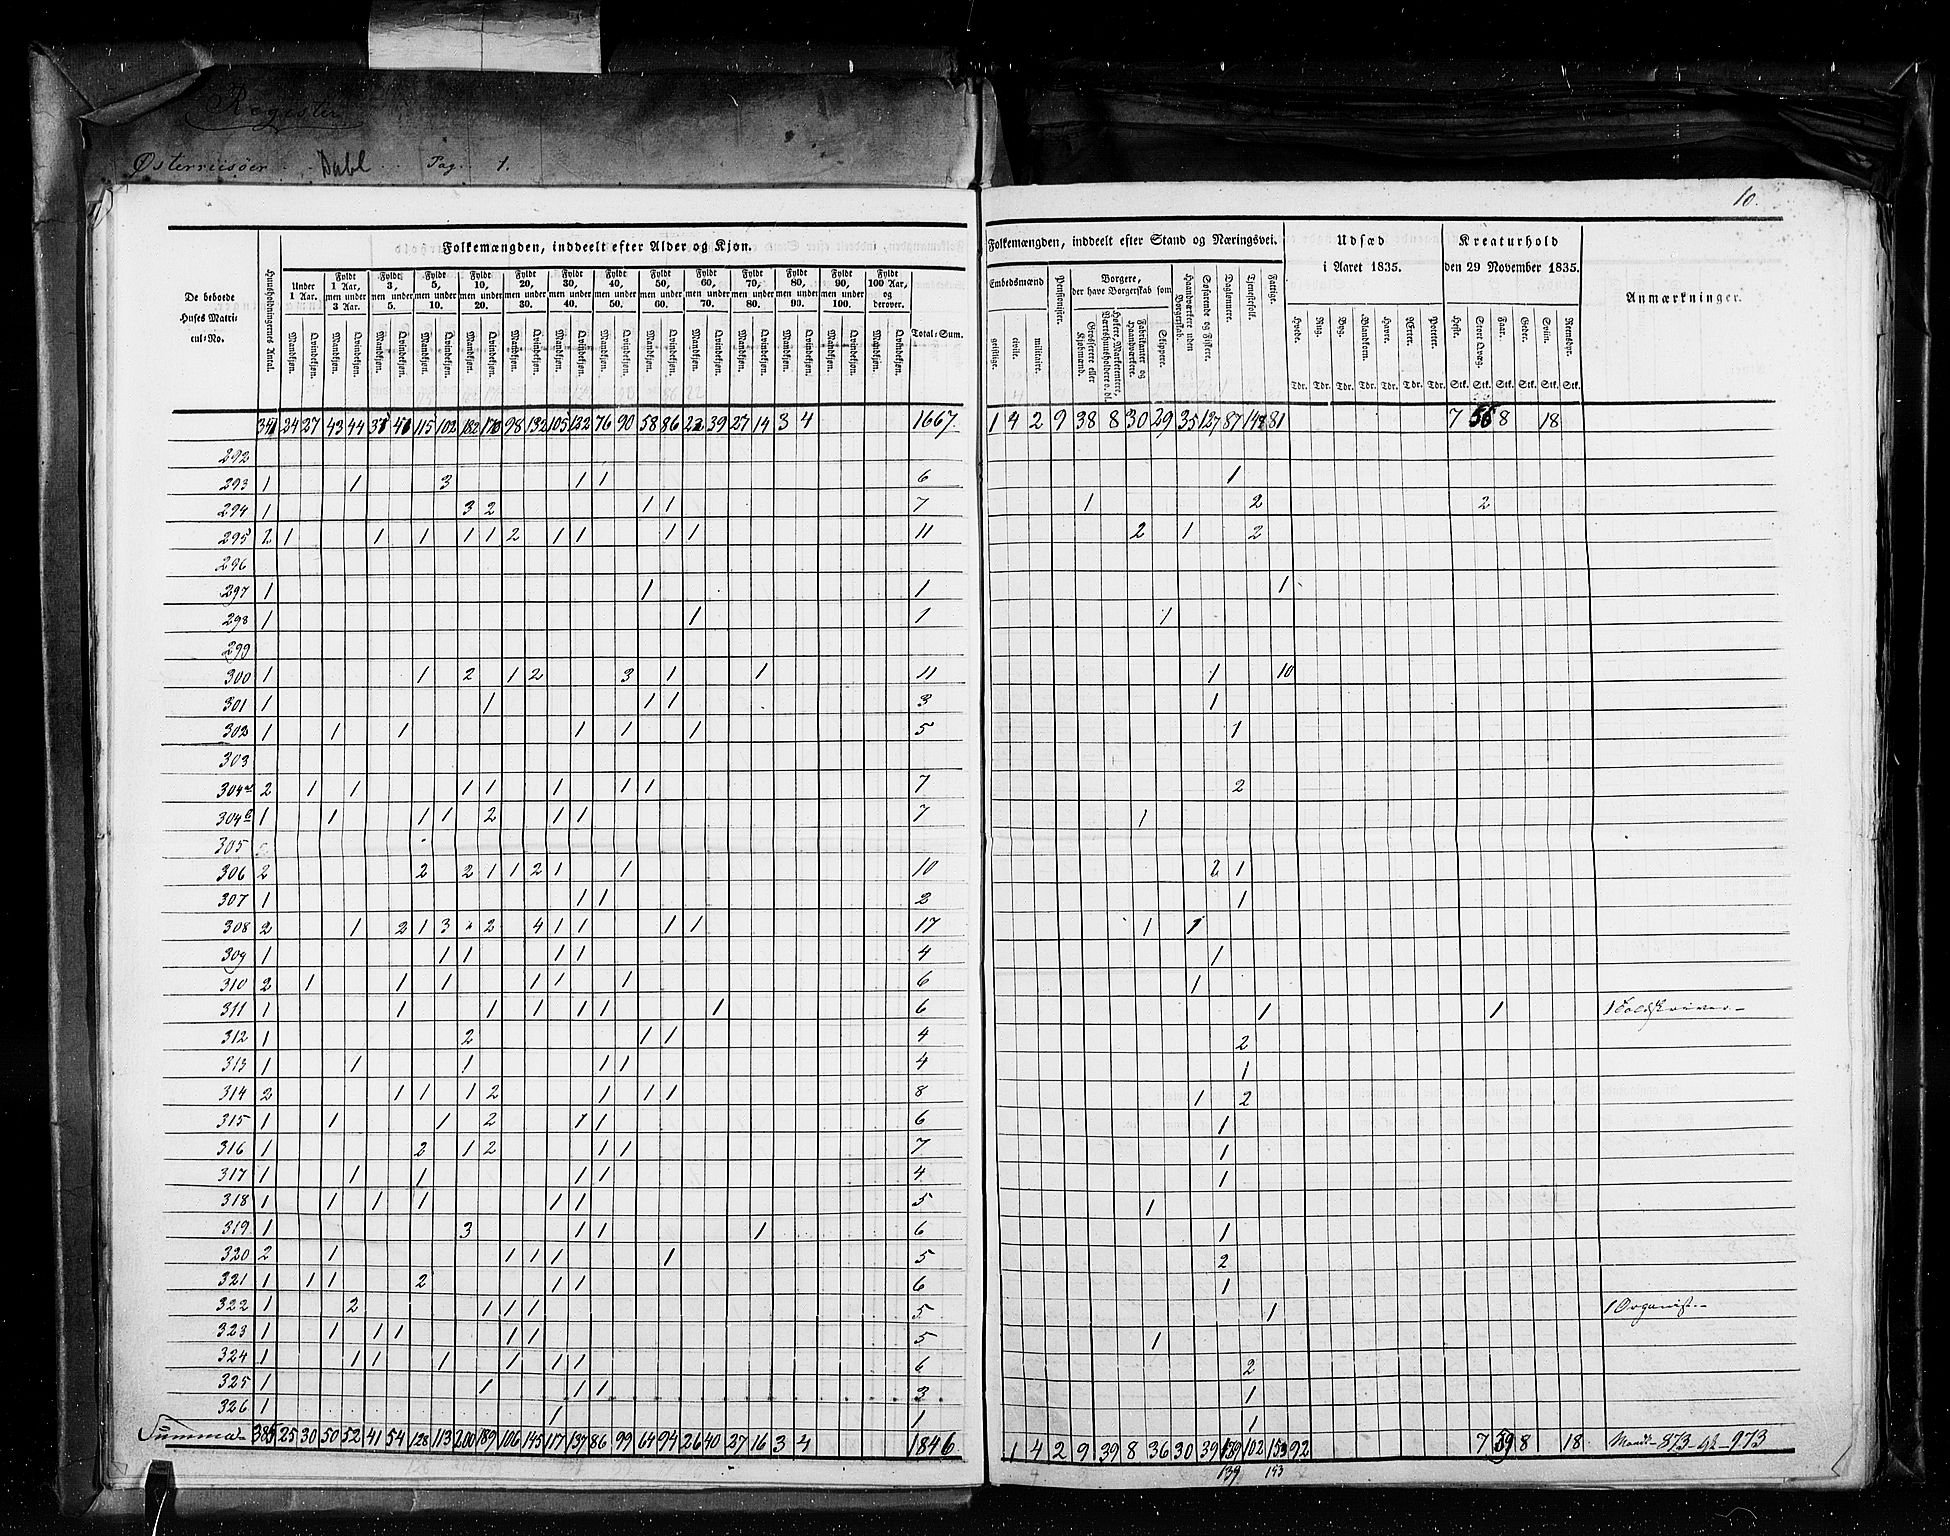 Register
Østerriisøer . . Dahl . . Pag. 1.
10.
Folkemængden, inddeelt efter Alder og Kjøn.
De beboede Huses Matricul-No.
Huusholdningernes Antal.
Under 1 Aar.
Fyldt 1 Aar, men under 3 Aar.
Fyldt 3, men under 5.
Fyldt 5, men under 10.
Fyldt 10, men under 20.
Fyldt 20, men under 30.
Fyldt 30, men under 40.
Fyldt 40, men under 50.
Fyldt 50, men under 60.
Fyldt 60, men under 70.
Fyldt 70, men under 80.
Fyldt 80, men under 90.
Fyldt 90, men under 100.
Fyldt 100 Aar, og derover.
Mandkjøn. Qvindekjøn.
Total-Sum.
Folkemængden, inddeelt efter Stand og Næringsvei.
Embedsmænd
geistlige. civile. militaire.
Pensionister.
Borgere, der have Borgerskab som
Grosserere eller Kjøbmænd.
Høkere, Marketentere, Værtshuusholdere o. dl.
Fabrikanter og Haandværkere.
Skippere.
Haandværkere uden Borgerskab.
Søfarende og Fiskere.
Daglønnere.
Tjenestefolk.
Fattige.
Udsæd i Aaret 1835.
Hvede. Rug. Byg. Blandkorn. Havre. Erter. Poteter.
Tdr. Tdr. Tdr. Tdr. Tdr. Tdr. Tdr.
Kreaturhold den 29 November 1835.
Heste. Stort Qvæg. Faar. Geder. Sviin. Rensdyr.
Stk. Stk. Stk. Stk. Stk. Stk.
Anmærkninger.
24 27 43 44 115 102 98 132 105 122 76 90 58 86 22 39 27 14 3 4 1667. 1 4 2 9 38 8 30 29 35 127 87 81 7 56 8 18
292
293 1 1 3 1 1 6 1
294 1 3 2 1 1 7 1 2 2
295 2 1 1 1 1 1 2 1 1 1 1 11 2 1 2
296
297 1 1 1 1
298 1 1 1 1
299
300 1 1 2 1 2 3 1 1 11 1 10
301 1 1 1 1 3 1
302 1 1 1 1 1 1 5 1
303
304a 2 1 1 1 1 1 1 1 7 2
304b 1 1 1 1 2 1 1 7 1
305
306 2 2 2 1 1 2 1 1 10 2 1
307 1 1 1 2 1
308 2 1 2 1 3 " 2 4 1 1 1 1 17 1 1
309 1 1 1 1 1 4 1
310 2 1 1 1 1 1 1 6 1
311 1 1 1 1 1 1 1 6 1 1 1 Toldskriver
312 1 2 1 1 4 2
313 1 1 1 1 1 4 1
314 2 1 1 1 2 1 1 1 8 1 2
315 1 1 1 2 1 1 6 1
316 1 2 1 2 1 1 7 1
317 1 1 1 1 1 4 1
318 1 1 1 1 1 1 5 1
319 1 3 1 1 1 6 1
320 2 1 1 1 1 1 5 2
321 1 1 1 2 1 1 6 1
322 1 2 1 1 1 5 1 1 Organist
323 1 1 1 1 1 1 5 1
324 1 1 1 1 1 1 1 6 2
325 1 1 1 1 3 1
326 1 1 1 1
Summa 385 25 30 50 52 41 54 128 113 200 189 106 145 117 137 86 99 64 94 26 40 27 16 3 4 1846 1 4 2 9 39 8 36 30 39 139 102 153 92 7 59 8 18 Mandk 873 973
139 153